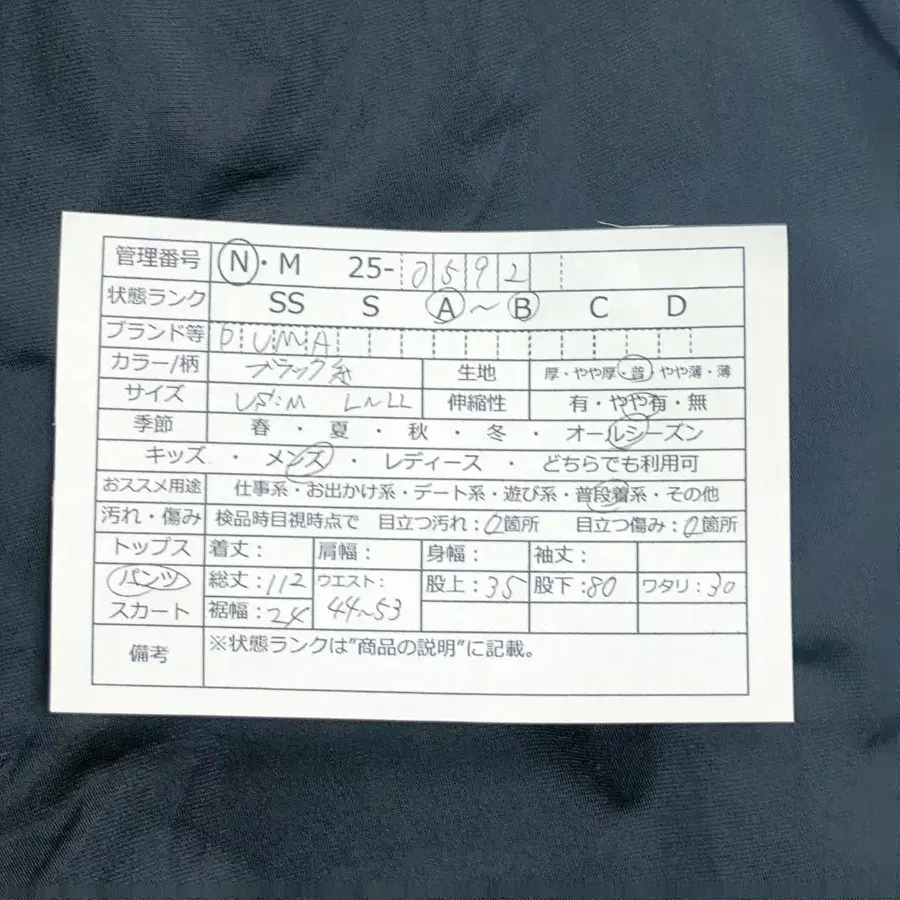 管理番号 N・M 25-0592
状態ランク SS S A ~ B C D
ブランド等 PUMA
カラー/柄 ブラック系 生地 厚・やや厚・普・やや薄・薄
サイズ US:M L~LL 伸縮性 有・やや有・無
季節 春 ・ 夏 ・ 秋 ・ 冬 ・ オールシーズン
キッズ ・ メンズ ・ レディース ・ どちらでも利用可
おススメ用途 仕事系・お出かけ系・デート系・遊び系・普段着系・その他
汚れ・傷み 検品時目視時点で 目立つ汚れ:0箇所 目立つ傷み:0箇所
トップス 着丈: 肩幅: 身幅: 袖丈:
パンツ 総丈:112 ウエスト: 股上:35 股下:80 ワタリ:30
スカート 裾幅:24 44~53
備考 ※状態ランクは"商品の説明"に記載。